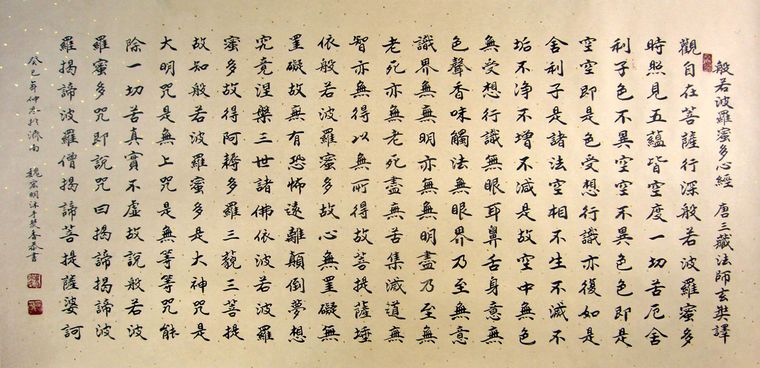 般若波羅蜜多心經 唐三藏法師玄奘譯
觀自在菩薩行深般若波羅蜜多
時照見五蘊皆空度一切苦厄舍
利子色不異空空不異色色即是
空空即是色受想行識亦復如是
舍利子是諸法空相不生不滅不
垢不淨不增不減是故空中無色
無受想行識無眼耳鼻舌身意無
色聲香味觸法無眼界乃至無意
識界無無明亦無無明盡乃至無
老死亦無老死盡無苦集滅道無
智亦無得以無所得故菩提薩埵
依般若波羅蜜多故心無罣礙無
罣礙故無有恐怖遠離顛倒夢想
究竟涅槃三世諸佛依般若波羅
蜜多故得阿耨多羅三藐三菩提
故知般若波羅蜜多是大神咒是
大明咒是無上咒是無等等咒能
除一切苦真實不虛故說般若波
羅蜜多咒即說咒曰揭諦揭諦波
羅揭諦波羅僧揭諦菩提薩婆訶
癸巳年仲於濟南 魏宏明沐手焚香恭書